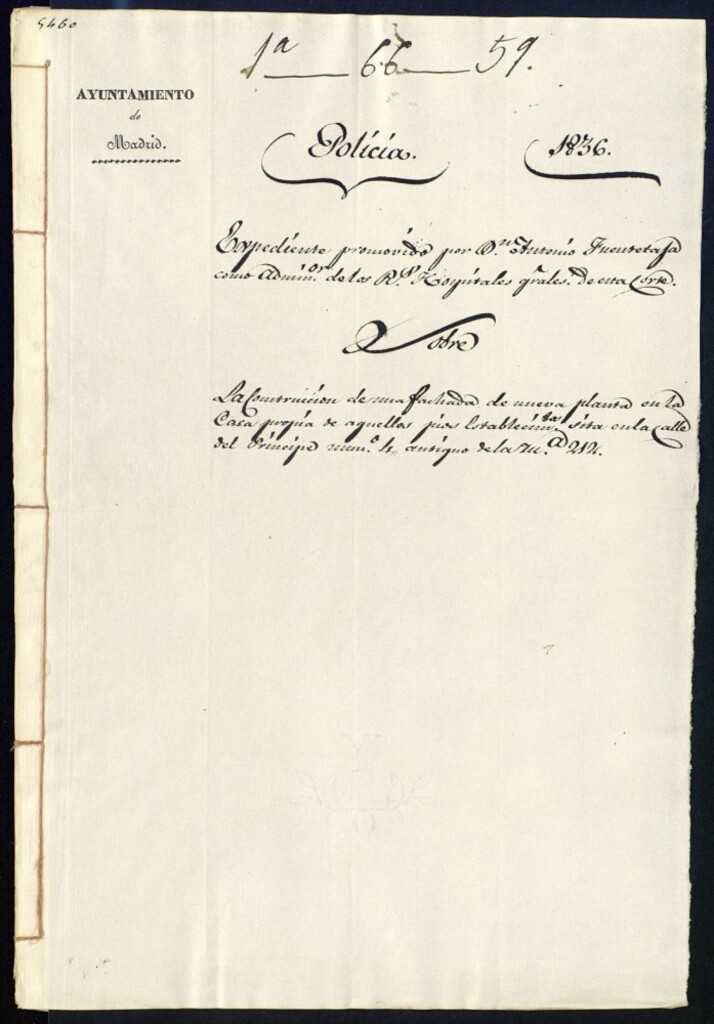 5460
1ª 66 59.
AYUNTAMIENTO
de
Madrid.
Policía. 1836.
Expediente promovido por Dn. Antonio Fuentetaja
como Admin.or de los R.s Hospitales grales. de esta Corte.
Sobre
La Construccion de una fachada de nueva planta en la
Casa propia de aquellos pios Establecim.tos sita en la Calle
del Principe num.o 4,, antiguo de la M.a 214.